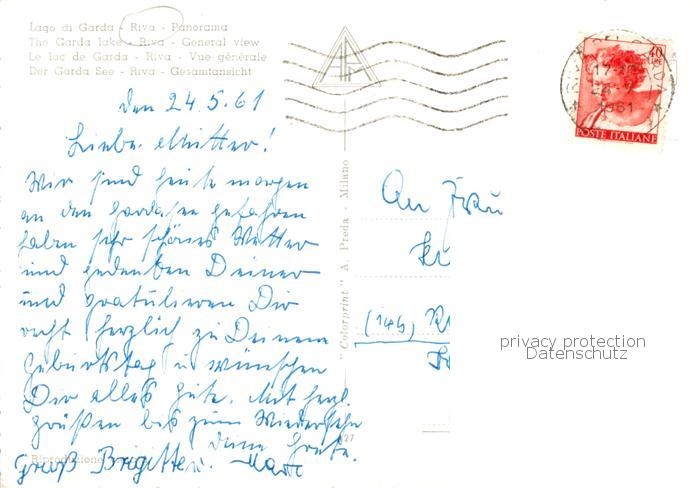 Lago di Garda - Riva - Panorama
The Garda lake - Riva - General view
Le lac de Garda - Riva - Vue générale
Der Garda See - Riva - Gesamtansicht
den 24.5.61
Liebe Mutter!
Wir sind heute morgen
an den Gardasee gefahren
haben sehr schönes Wetter
und gedenken Deiner
und gratulieren Dir
recht herzlich zu Deinem
Geburtstag u. wünschen
Dir alles Gute. Mit herzl.
Grüßen bis zum Wiedersehn
Deine Grete.
Gruß Brigitte u.
"Colorprint" A. Preda - Milano
An Frau
(14b)
40
1961
POSTE ITALIANE
privacy protection
Datenschutz